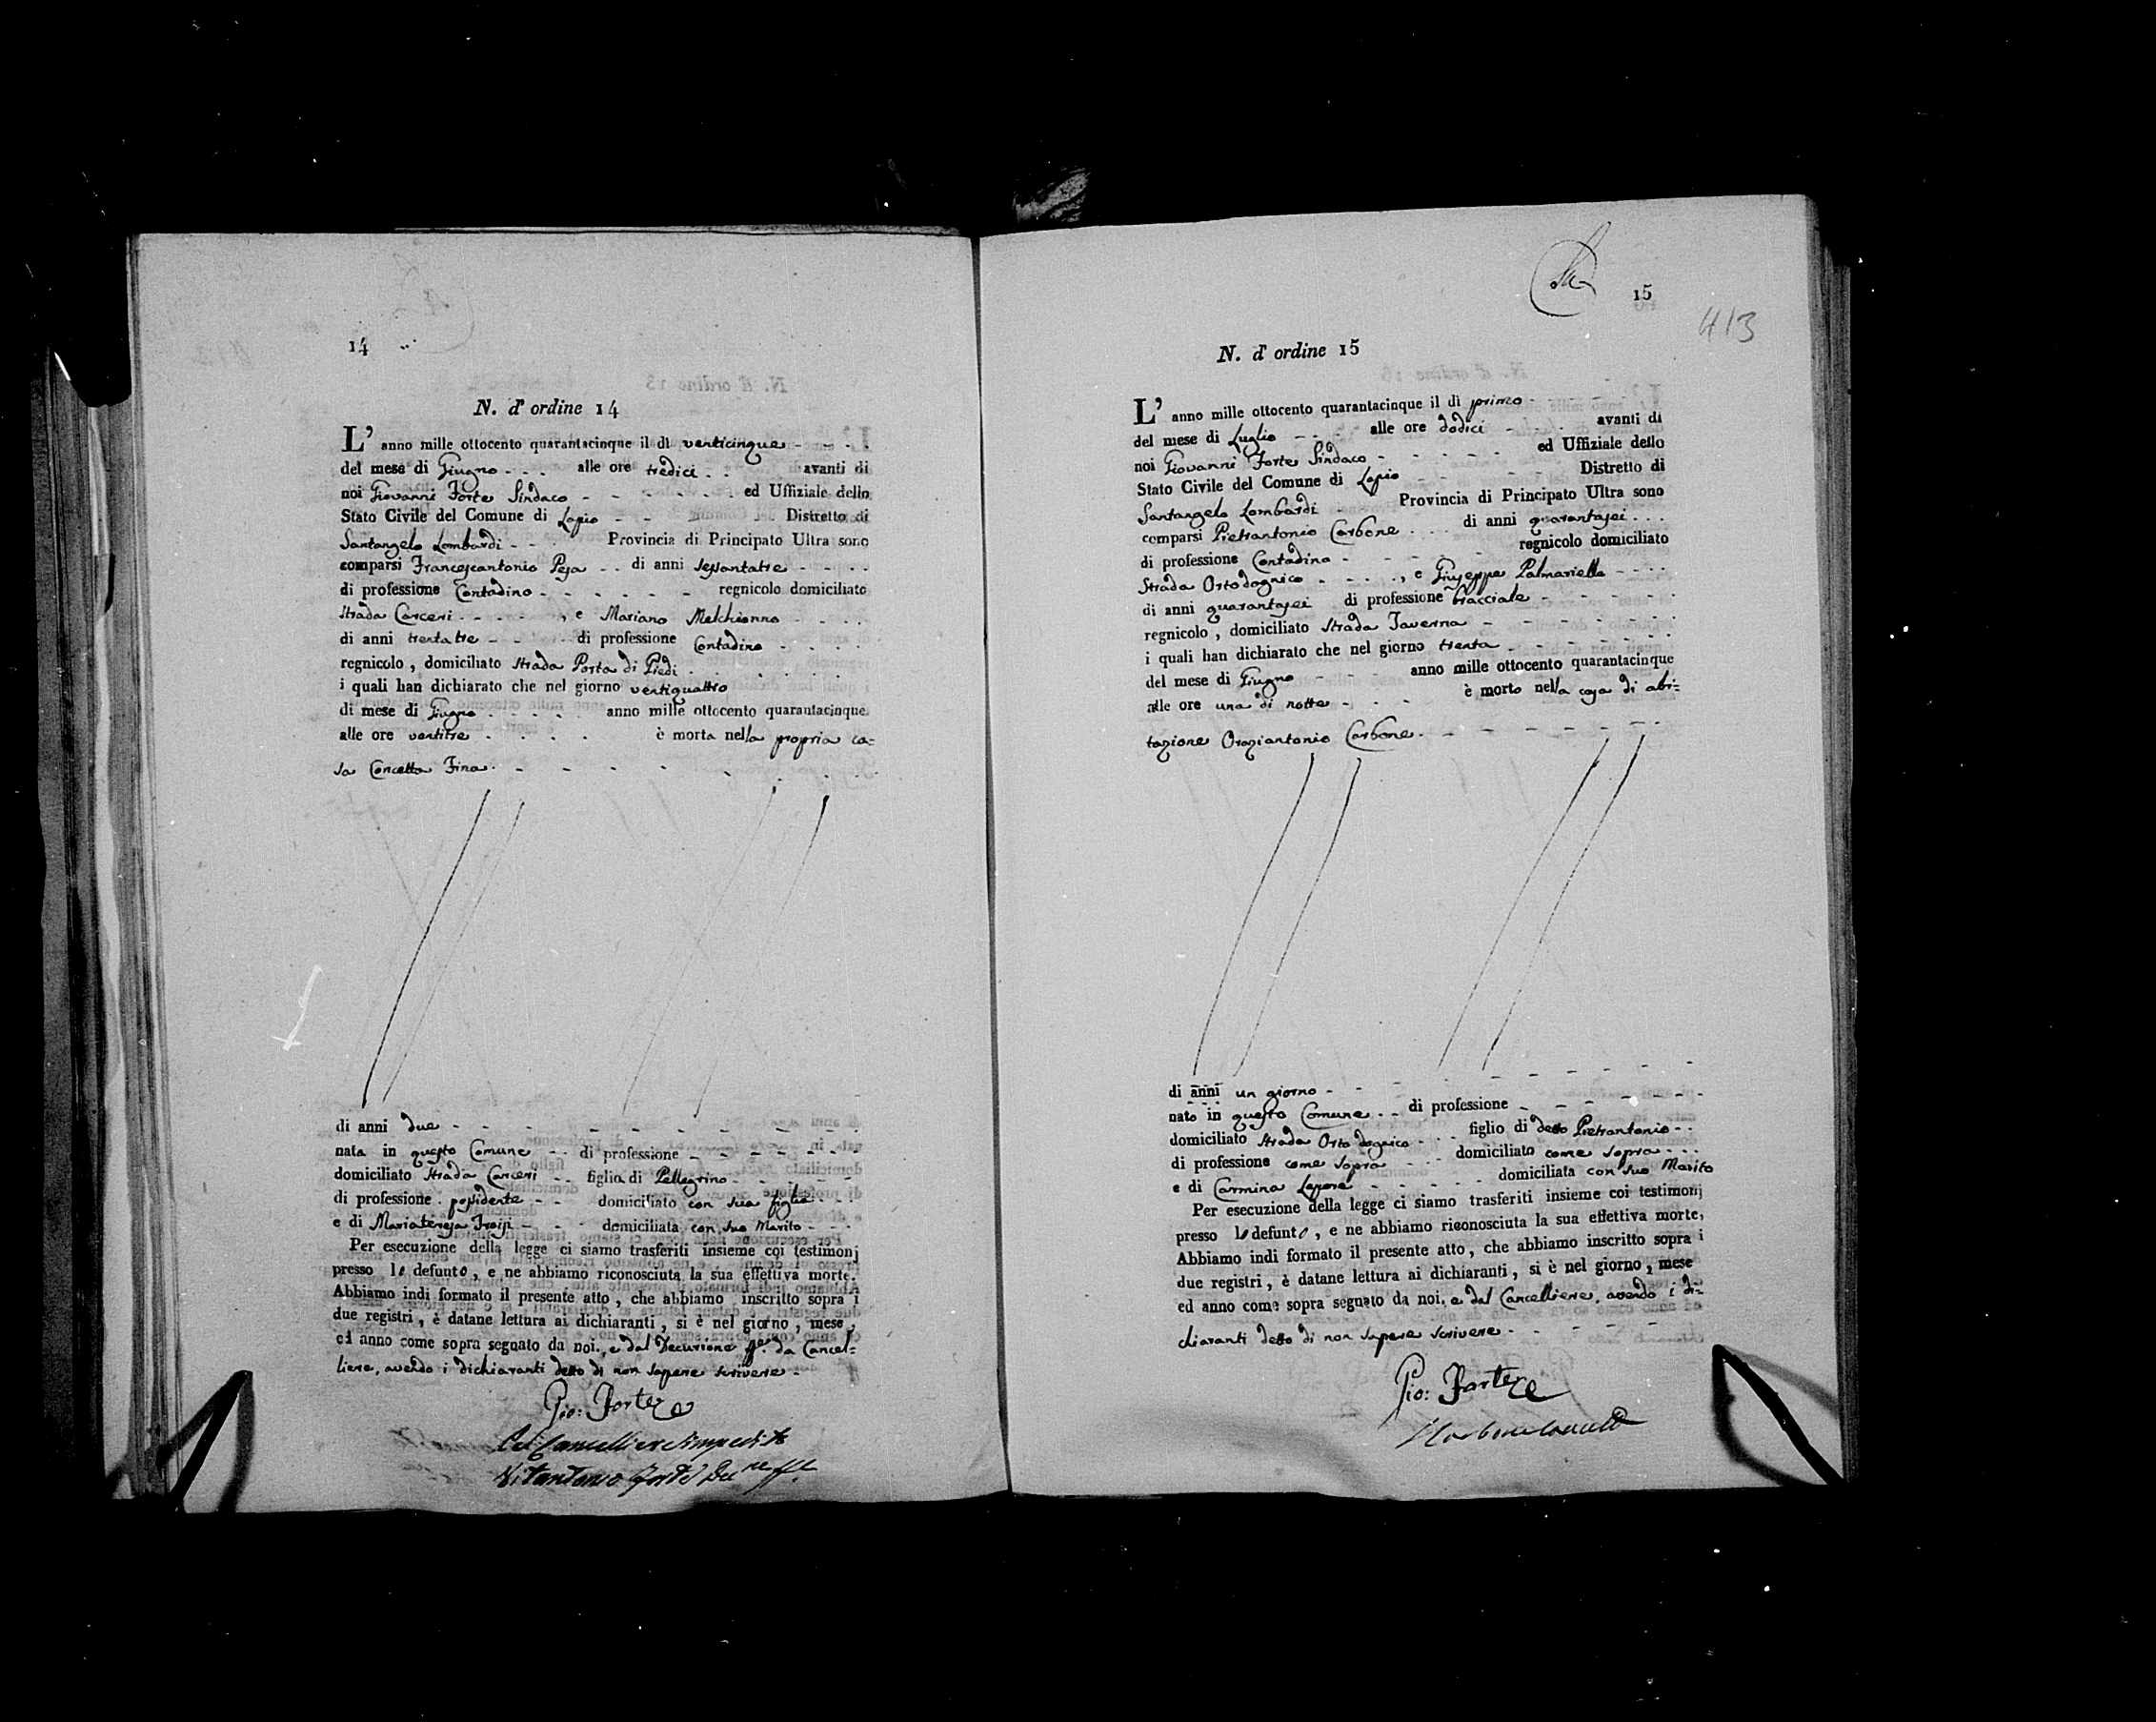 14
N. d' ordine 14
L' anno mille ottocento quarantacinque il dì venticinque
del mese di Giugno alle ore tredici avanti di
noi Giovanni Forte Sindaco ed Uffiziale dello
Stato Civile del Comune di Lapio Distretto di
Santangelo Lombardi Provincia di Principato Ultra sono
comparsi Francescantonio Pesa di anni sessantatre
di professione Contadino regnicolo domiciliato
Strada Carceri , e Mariano Melchionno
di anni trentatre di professione Contadino
regnicolo , domiciliato Strada Porta di Piedi
i quali han dichiarato che nel giorno ventiquattro
di mese di Giugno anno mille ottocento quarantacinque
alle ore ventitre è morta nella propria ca=
sa Concetta Fina
di anni due
nata in questo Comune di professione
domiciliato Strada Carceri figlia di Pellegrino
di professione possidente domiciliato con sua figlia
e di Mariateresa domiciliata con suo Marito
Per esecuzione della legge ci siamo trasferiti insieme coi testimonj
presso lo defunto , e ne abbiamo riconosciuta la sua effettiva morte.
Abbiamo indi formato il presente atto , che abbiamo inscritto sopra i
due registri , è datane lettura ai dichiaranti , si è nel giorno , mese ,
ed anno come sopra segnato da noi, e dal Decurione ff. da Cancel=
liere, avendo i dichiaranti detto di non sapere scrivere
Gio: Forte
Cel Cancelliere impedito
Vitantonio Forte
15
413
N. d' ordine 15
L' anno mille ottocento quarantacinque il dì primo
del mese di Luglio alle ore dodici avanti di
noi Giovanni Forte Sindaco ed Uffiziale dello
Stato Civile del Comune di Lapio Distretto di
Santangelo Lombardi Provincia di Principato Ultra sono
comparsi Pietrantonio Carbone di anni quarantasei
di professione Contadino regnicolo domiciliato
Strada Ortodognico , e Giuseppe Palmariello
di anni quarantasei di professione bracciale
regnicolo , domiciliato Strada Taverna
i quali han dichiarato che nel giorno trenta
del mese di Giugno anno mille ottocento quarantacinque
alle ore una di notte è morto nella casa di abi=
tazione Oraziantonio Carbone
di anni un giorno
nato in questo Comune di professione
domiciliato Strada Orto dognico figlio di detto Pietrantonio
di professione come sopra domiciliato come sopra
e di Carmina Lepore domiciliata con suo Marito
Per esecuzione della legge ci siamo trasferiti insieme coi testimonj
presso lo defunto , e ne abbiamo riconosciuta la sua effettiva morte,
Abbiamo indi formato il presente atto , che abbiamo inscritto sopra i
due registri , è datane lettura ai dichiaranti , si è nel giorno , mese
ed anno come sopra segnato da noi, e dal Cancelliere, avendo i di=
chiaranti detto di non sapere scrivere
Gio: Forte